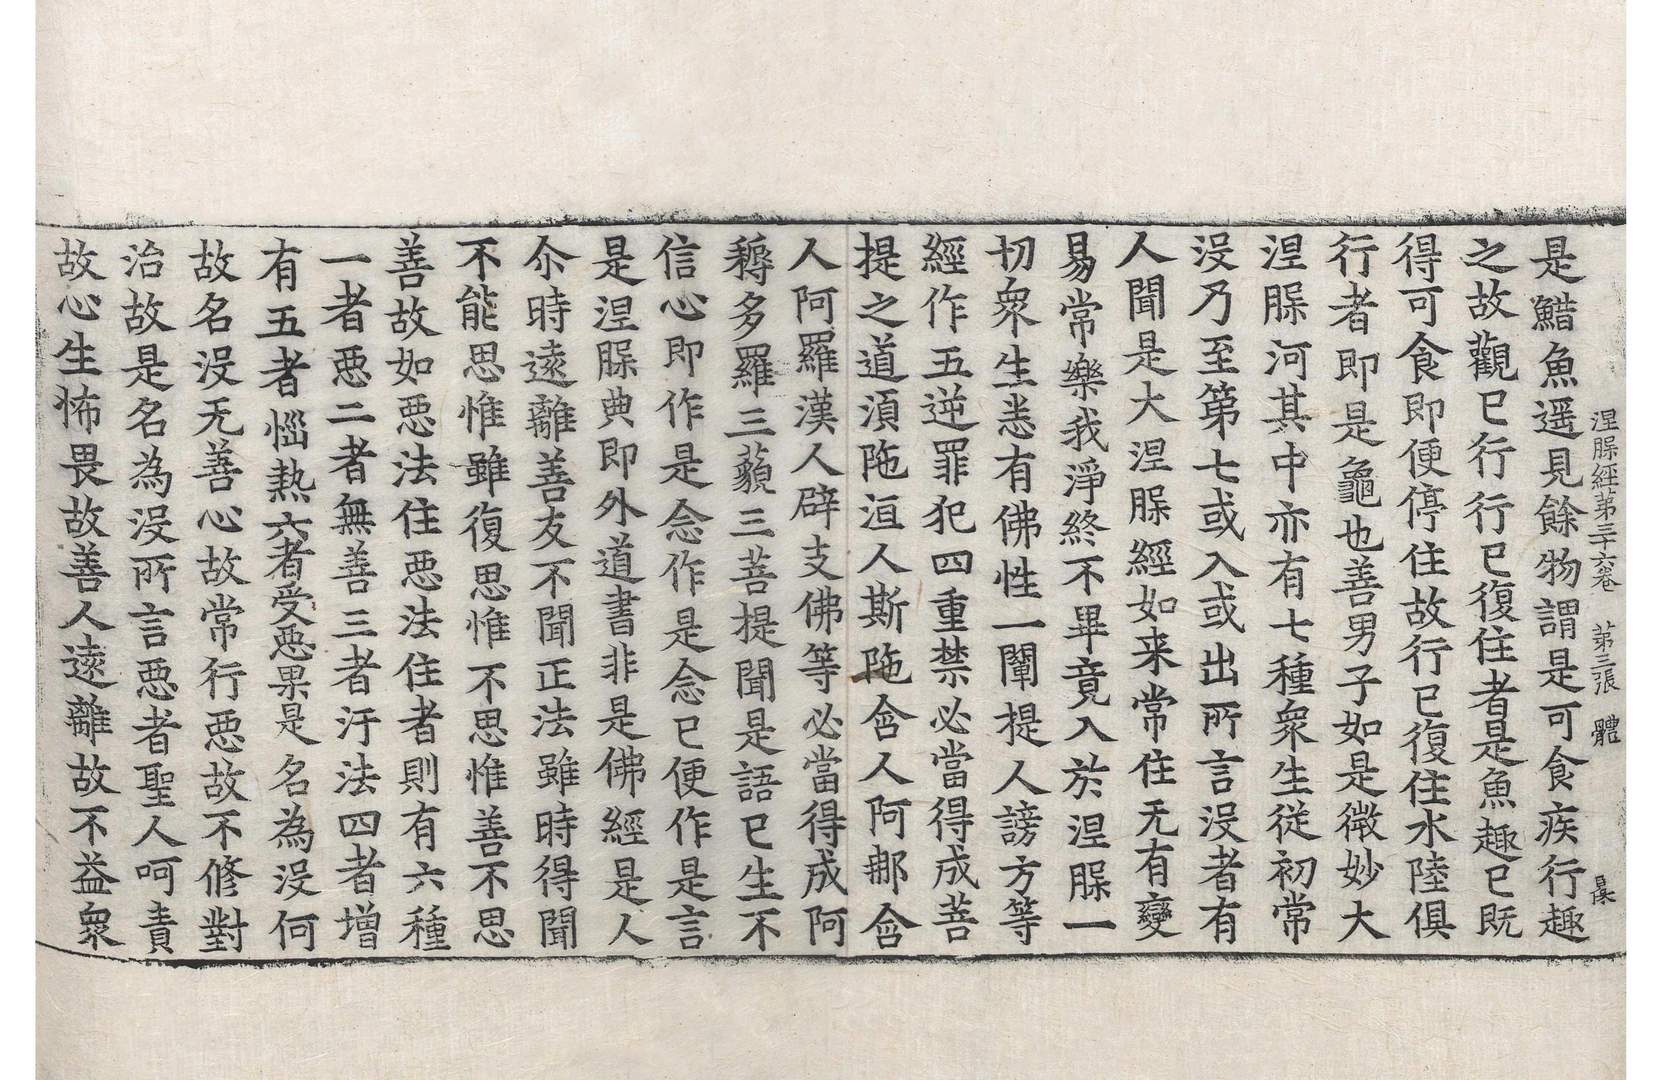 涅槃經第三十六卷　第三張　體
是䱜魚遥見餘物謂是可食疾行趣
之故觀已行行已復住者是魚趣已既
得可食即便停住故行已復住水陸俱
行者即是龜也善男子如是微妙大
涅槃河其中亦有七種衆生從初常
没乃至第七或入或出所言没者有
人聞是大涅槃經如来常住无有變
易常樂我淨終不畢竟入於涅槃一
切衆生悉有佛性一闡提人謗方等
經作五逆罪犯四重禁必當得成菩
提之道湏陁洹人斯陁含人阿䣸含
人阿羅漢人辟支佛等必當得成阿
耨多羅三藐三菩提聞是語已生不
信心即作是念作是念已便作是言
是涅槃典即外道書非是佛經是人
尒時遠離善友不聞正法雖時得聞
不能思惟雖復思惟不思惟善不思
善故如惡法住惡法住者則有六種
一者惡二者無善三者汙法四者增
有五者惱熱六者受惡果是名為没何
故名没无善心故常行惡故不修對
治故是名為没所言惡者聖人呵責
故心生怖畏故善人遠離故不益衆